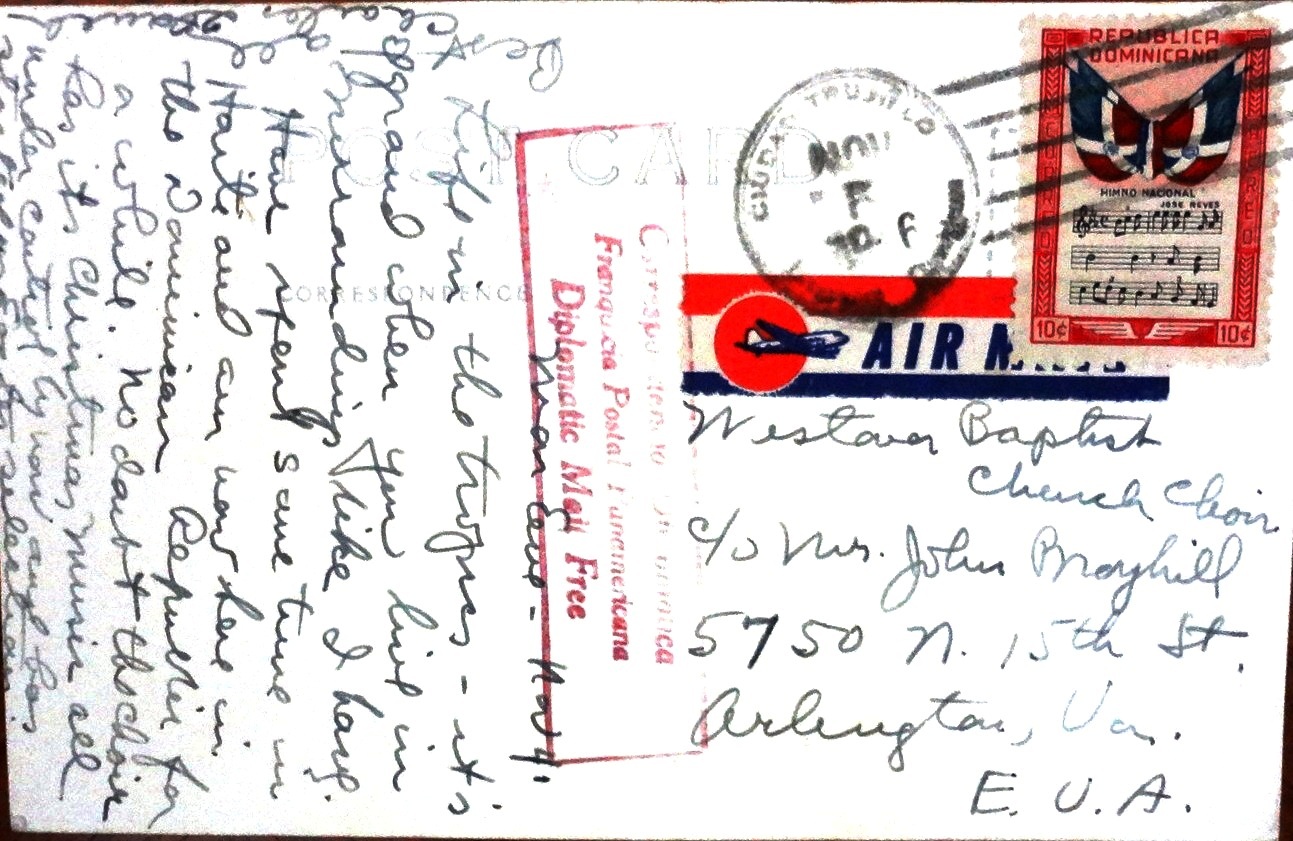 POST CARD
CORRESPONDENCE
REPUBLICA
DOMINICANA
HIMNO NACIONAL
JOSE REYES
10¢ 10¢
CIUDAD TRUJILLO
NOV
AIR MAIL
Franquicia Postal Panamericana
Diplomatic Mail Free
Westover Baptist
Church Choir
c/o Mrs. John Broyhill
5750 N. 15th St.
Arlington, Va.
E. U. A.
Nov 4.
Life in the tropics - it's
grand when you live in
surroundings like I have.
Have spent some time in
Haiti and am now here in
the Dominican Republic for
a while. No doubt the choir
has its Christmas music all
under control by now and has
Best